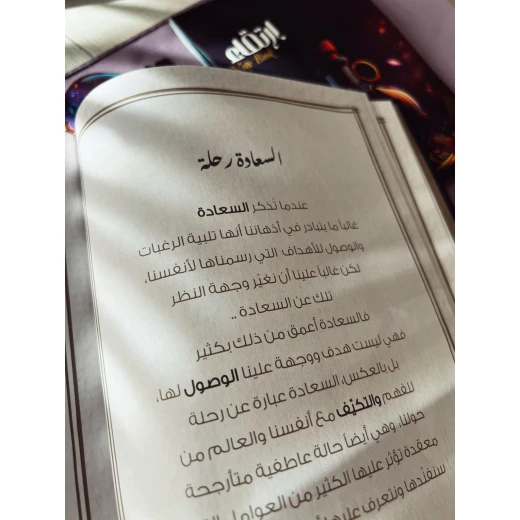 إرتقاء
السعادة رحلة
عندما نذكر السعادة
غالباً ما يتبادر في أذهاننا أنها تلبية الرغبات
والوصول للأهداف التي رسمناها لأنفسنا،
لكن غالباً علينا أن نغيّر وجهة النظر
تلك عن السعادة ..
فالسعادة أعمق من ذلك بكثير
فهي ليست هدف ووجهة علينا الوصول لها،
بل بالعكس، السعادة عبارة عن رحلة
للفهم والتكيّف مع أنفسنا والعالم من
حولنا، وهي أيضاً حالة عاطفية متأرجحة
معقدة تؤثر عليها الكثير من العوامل
سنفندها ونتعرف عليها